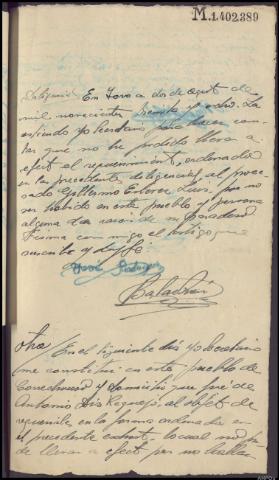 M.1.402.389
Diligencia En Toro a dos de Agosto de
mil novecientos treinta y ocho. La
extiendo yo Secretario para hacer cons
tar que no ha podido llevar a
efecto el requerimiento, ordenado
en la precedente diligencia, al proce
sado Guillermo Luis por no
ser habido en este pueblo y persona
alguna da razon de su paradero
Firma con migo el testigo que
suscribe y doy fé
Rodriguez
Otra/ En el siguiente dia yo Secretario
me constitui en este pueblo de
y domicilio que fué de
Antonio al objeto de
requerirle en la forma ordenada en
el precedente exhorto, lo cual no pu
de llevar a efecto por no hallar